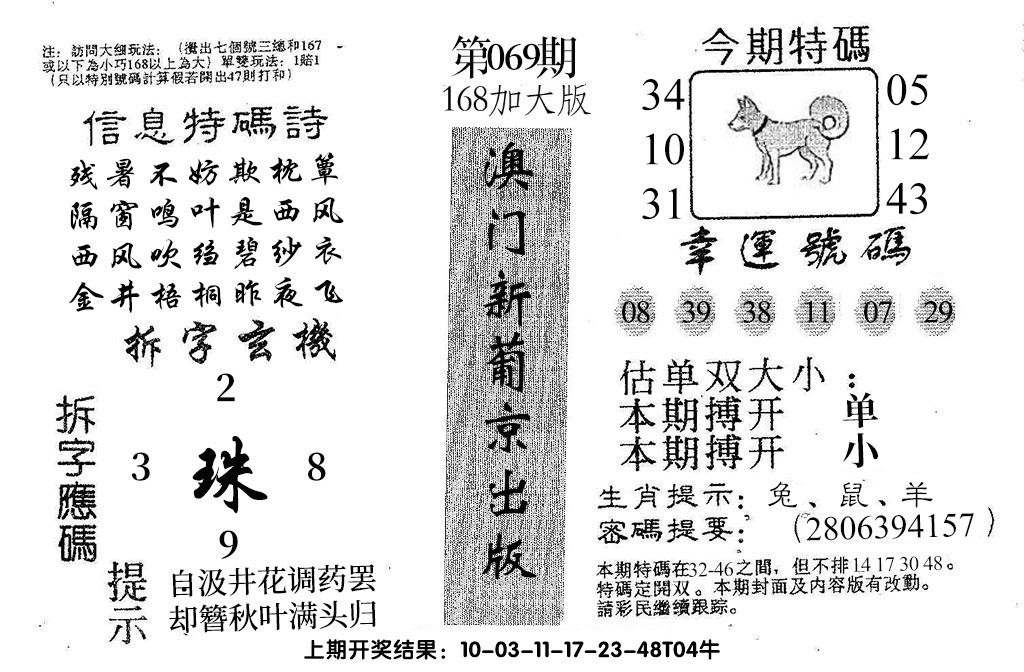 注：訪問大细玩法：（攪出七個號三總和167
或以下為小巧168以上為大）單雙玩法：1賠1
（只以特別號碼計算假若開出47則打和）
信息特碼詩
残暑不妨欺枕簟
隔窗鸣叶是西风
西风吹绉碧纱衣
金井梧桐昨夜飞
拆字玄機
拆字應碼
2
3 珠 8
9
提示
自汲井花调药罢
却簪秋叶满头归
第069期
168加大版
澳门新葡京出版
今期特碼
34 05
10 12
31 43
幸運號碼
08 39 38 11 07 29
估单双大小：
本期搏开 单
本期搏开 小
生肖提示：兔、鼠、羊
密碼提要：（2806394157）
本期特碼在32-46之間，但不排14 17 30 48。
特碼定開双。本期封面及内容版有改動。
請彩民繼續跟踪。
上期开奖结果：10-03-11-17-23-48T04牛